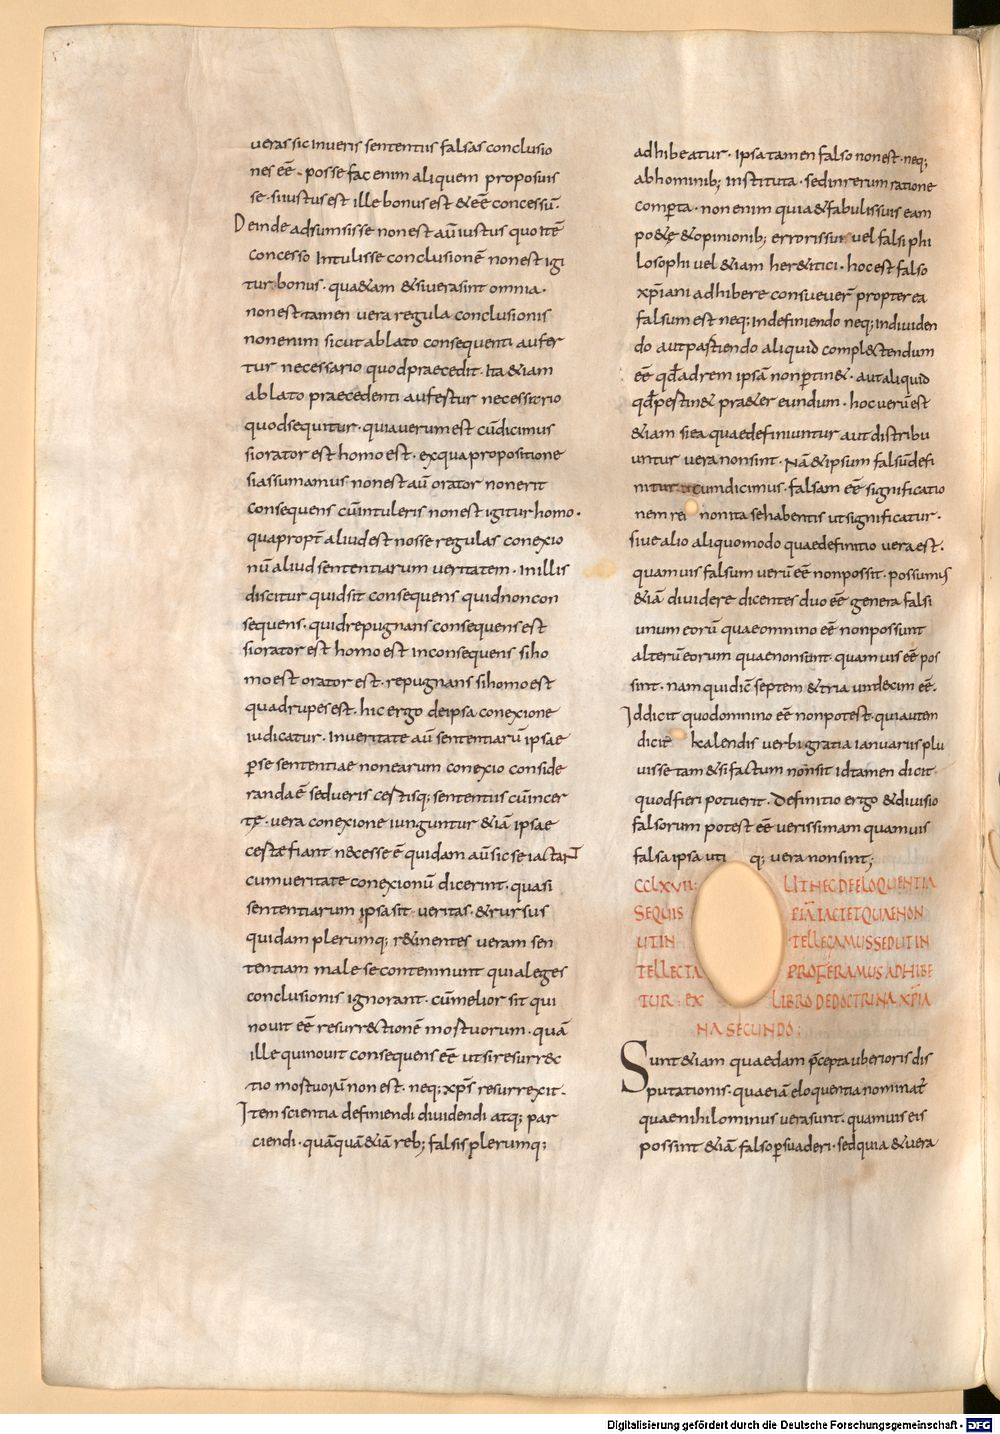 ueras sic in ueris sententiis falsas conclusio
nes eē . posse fac enim aliquem proposuis
se . si iustus est ille bonus est & eē concessū .
Deinde adsumsisse non est aū iustus quo itē
concesso Intulisse conclusionē non est igi
tur bonus . quae&iam & si uera sint omnia .
non est tamen uera regula conclusionis
non enim sicut ablato consequenti aufer
tur necessario quod praecedit . Ita &iam
ablato praecedenti aufertur necessario
quod sequitur . quia uerum est cū dicimus
si orator est homo est . ex qua propositione
si assumamus non est aū orator non erit
consequens cū intuleris non est igitur homo .
quapropt̄ aliud est nosse regulas conexio
nū aliud sententiarum ueritatem . in illis
discitur quid sit consequens quid non con
sequens . quid repugnans consequens est
si orator est homo est inconsequens si ho
mo est orator est . repugnans si homo est
quadrupes est . hic ergo de ipsa conexione
iudicatur . In ueritate aū sententiarū ipsae
ꝑse sententiae non earum conexio conside
randa ē sed ueris certisq; sententiis cū incer
tę . uera conexione iunguntur &iā ipsae
certae fiant necesse ē quidam aū sic se iactant
cum ueritate conexionū dicerint . quasi
sententiarum ipsa sit ueritas . & rursus
quidam plerumq; r&inentes ueram sen
tentiam male se contemnunt qui a leges
conclusionis ignorant . cū melior sit qui
nouit eē resurr&tionē mortuorum . quā
ille qui nouit consequens eē ut si resurrec
tio mortuorū non est . neq; xp̄s resurrexit .
Item scientia definiendi diuidendi atq; par
ciendi . quāquā &iā reb; falsis plerumq;
adhibeatur . ipsa tamen falso non est . neq;
ab hominib; instituta . sed in rerum ratione
comꝑta . non enim quia & fabulis suis eam
po&ę & opinionib; erroris sui uel falsi phi
losophi uel &iam her&itici . hoc est falso
xp̄iani adhibere consueuer̄ propterea
falsum est neq; in definiendo neq; in diuiden
do aut partiendo aliquid compl&tendum
eē qđ ad rem ipsā non ꝑtin& . aut aliquid
qđ pertin& pra&er eundum . hoc uerū est
&iam si ea quae definiuntur aut distribu
untur uera non sint . Nā & ipsum falsū defi
nitur cum dicimus . falsam eē significatio
nem rei non ita se habentis ut significatur .
siue alio aliquo modo quae definitio uera est .
quamuis falsum uerū eē non possit . possumus
&iā diuidere dicentes duo eē genera falsi
unum eorū quae omnino eē non possunt
alterū eorum quae non sunt . quamuis eē pos
sint . nam qui dic̄ septem & tria undecim eē .
Id dicit quod omnino eē non potest . qui autem
dicit kalendis uerbi gratia ianuariis plu
uisse tam & si factum non sit id tamen dicit
quod fieri potuerit . Definitio ergo & diuisio
falsorum potest eē uerissimam quamuis
falsa ipsa uti q; uera non sint ;
CCLXVII: UT HEC DE ELOQUENTIA
SEQUIS
UTIN TELLEGAMUS SED UT IN
TELLECTA PROFERAMUS ADHIBE
TUR : EX LIBRO DE DOCTRINA XP̄IA
NA SECUNDO :
Sunt &iam quaedam p̄cepta uberioris dis
putationis . quae iā eloquentia nominat̄
quae nihilominus uera sunt . quamuis eis
possint &iā falso ꝑsuaderi . sed quia & uera
Digitalisierung gefördert durch die Deutsche Forschungsgemeinschaft - DFG